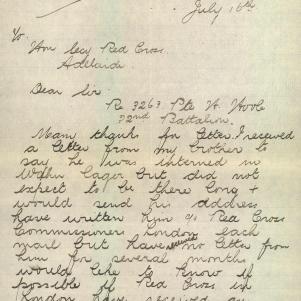 July 16th
To
Hon Secy Red Cross.
Adelaide.
Dear Sir
Re 3263 Pte W. Hoole
32nd Battalion.
Many thanks for letter. I received
a letter from my brother to
say he was interned in
Lager but did not
expect to be there long +
would send his address
have written him c/o Red Cross
Commissioner London each
mail but have received no letter from
him for several months
would like to know if
possible if Red Cross in
London have received an